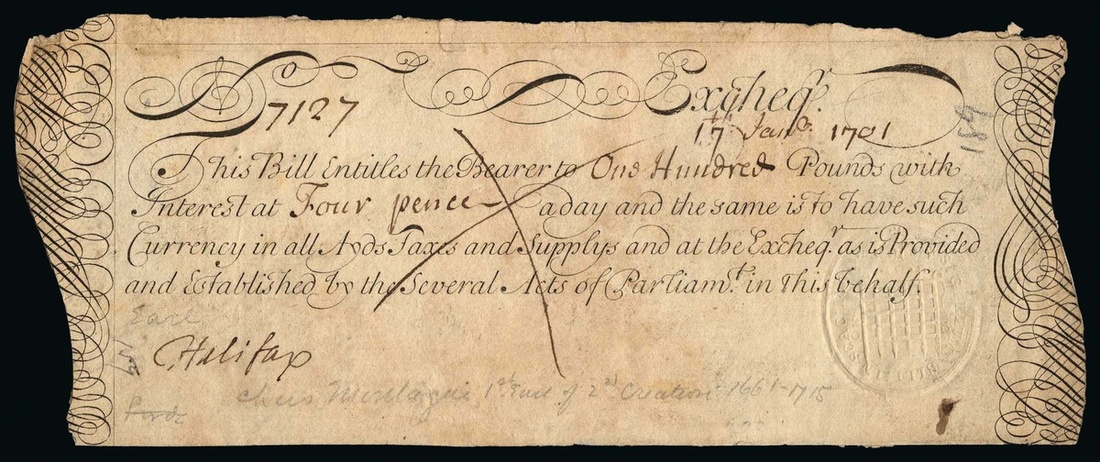 No 7127 Exgheqr.
17th Janry. 1701
This Bill Entitles the Bearer to One Hundred Pounds with
Interest at Four pence a day and the same is to have such
Currency in all Ayds Taxes and Supplys and at the Excheqr. as is Provided
and Established by the Several Acts of Parliamt. in this behalf.
Earl
Halifax
1st Earl of 2nd Creation 1661-1715